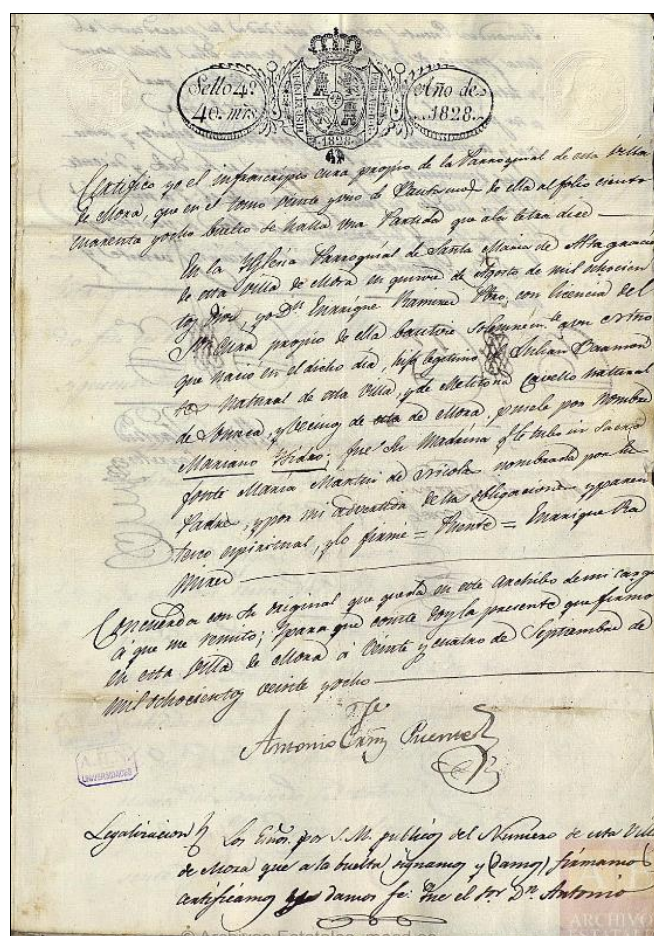 Sello 4º
40. mrs.
HISPANIAR
1828.
Año de
1828.
Certifico yo el infrascripto cura propio de la Parroquial de esta Villa
de Mora, que en el tomo veinte y uno de Bautismos de ella al folio ciento
cuarenta y ocho buelto se halla una Partida que a la letra dice
En la Yglesia Parroquial de Santa Maria de Altagracia
de esta Villa de Mora en quince de Agosto de mil ochocien
tos diez, yo Dn. Enrrique Ramirez Pbro. con licencia del
Sor. Cura propio de ella bautice solemnemte. a un Niño
que nacio en el dicho dia, hijo legitimo de Julian
natural de esta Villa, y de Melitona Cavello natural
de Sonseca, y vecinos de esta de Mora, pusele por nombre
Mariano Ysidro; fue su Madrina qe. le tubo in Sacro
fonte Maria Martin de Nicolas nombrada por los
Padres, y por mi advertida de la obligacion y paren
tesco espiritual, y lo firmé = Puente = Enrrique Ra
mirez
Concuerda con su original que queda en este Archibo de mi cargo
á que me remito; y para que conste doy la presente que firmo
en esta Villa de Mora á Veinte y cuatro de Septiembre de
mil ochocientos veinte y ocho
Antonio Puente
UNIVERSIDADES
Legalizacion Los Esnos. por S.M. publicos del Numero de esta Villa
de Mora que a la buelta signamos y (damos) firmamos
certificamos y damos fe: Que el Sor. Dn. Antonio
ARCHIVO
ESTATALES
© Archivos Estatales, mecd.es